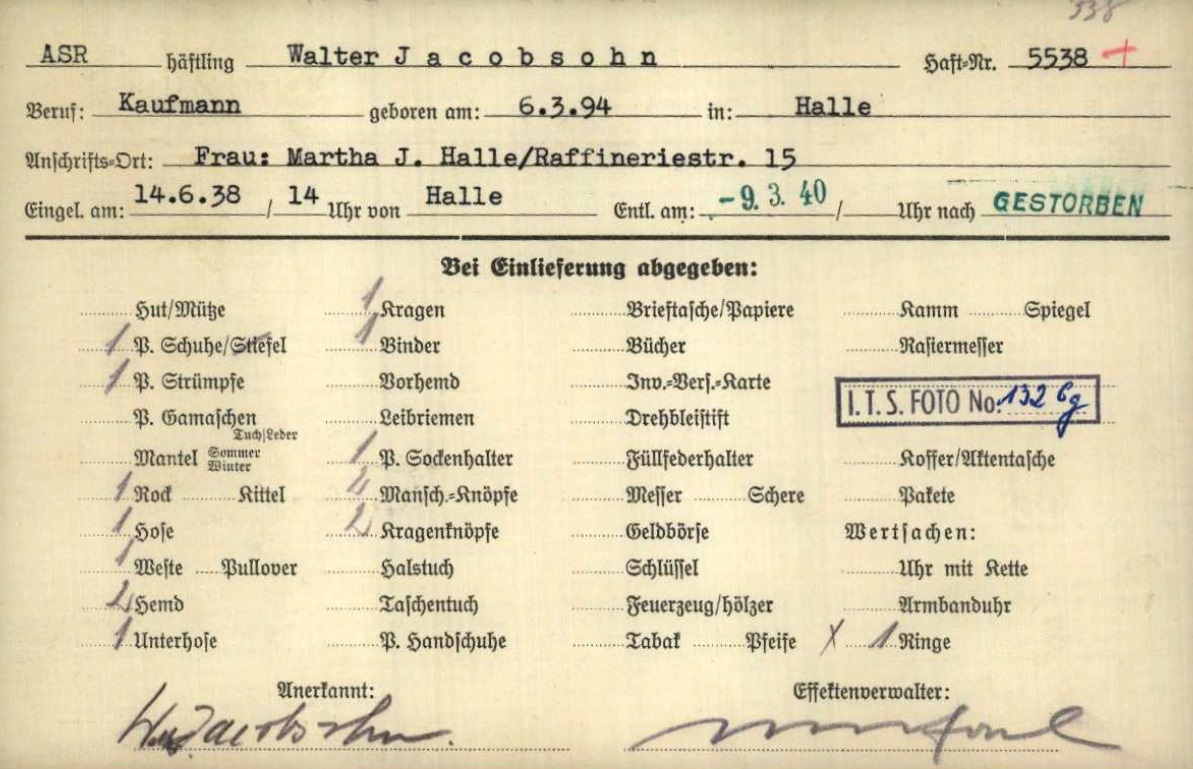 538
ASR häftling Walter Jacobsohn Haft-Nr. 5538 +
Beruf: Kaufmann geboren am: 6.3.94 in: Halle
Anschrifts-Ort: Frau: Martha J. Halle/Raffineriestr. 15
Eingel. am: 14.6.38 / 14 Uhr von Halle Entl. am: -9. 3. 40 / Uhr nach GESTORBEN
Bei Einlieferung abgegeben:
Hut/Mütze 1 Kragen Brieftasche/Papiere Kamm Spiegel
1 P. Schuhe/Stiefel 1 Binder Bücher Rasiermesser
1 P. Strümpfe Vorhemd Inv.-Vers.-Karte
I.T.S. FOTO No: 132
P. Gamaschen Leibriemen Drehbleistift
Tuch/Leder
Mantel Sommer Winter 1 P. Sockenhalter Füllfederhalter Koffer/Aktentasche
1 Rock Kittel Mansch.-Knöpfe Messer Schere Pakete
1 Hose 2 Kragenknöpfe Geldbörse Wertsachen:
1 Weste Pullover Halstuch Schlüssel Uhr mit Kette
2 Hemd Taschentuch Feuerzeug/hölzer Armbanduhr
1 Unterhose P. Handschuhe Tabak Pfeife X 1 Ringe
Anerkannt: Effektenverwalter:
W. Jacobsohn.